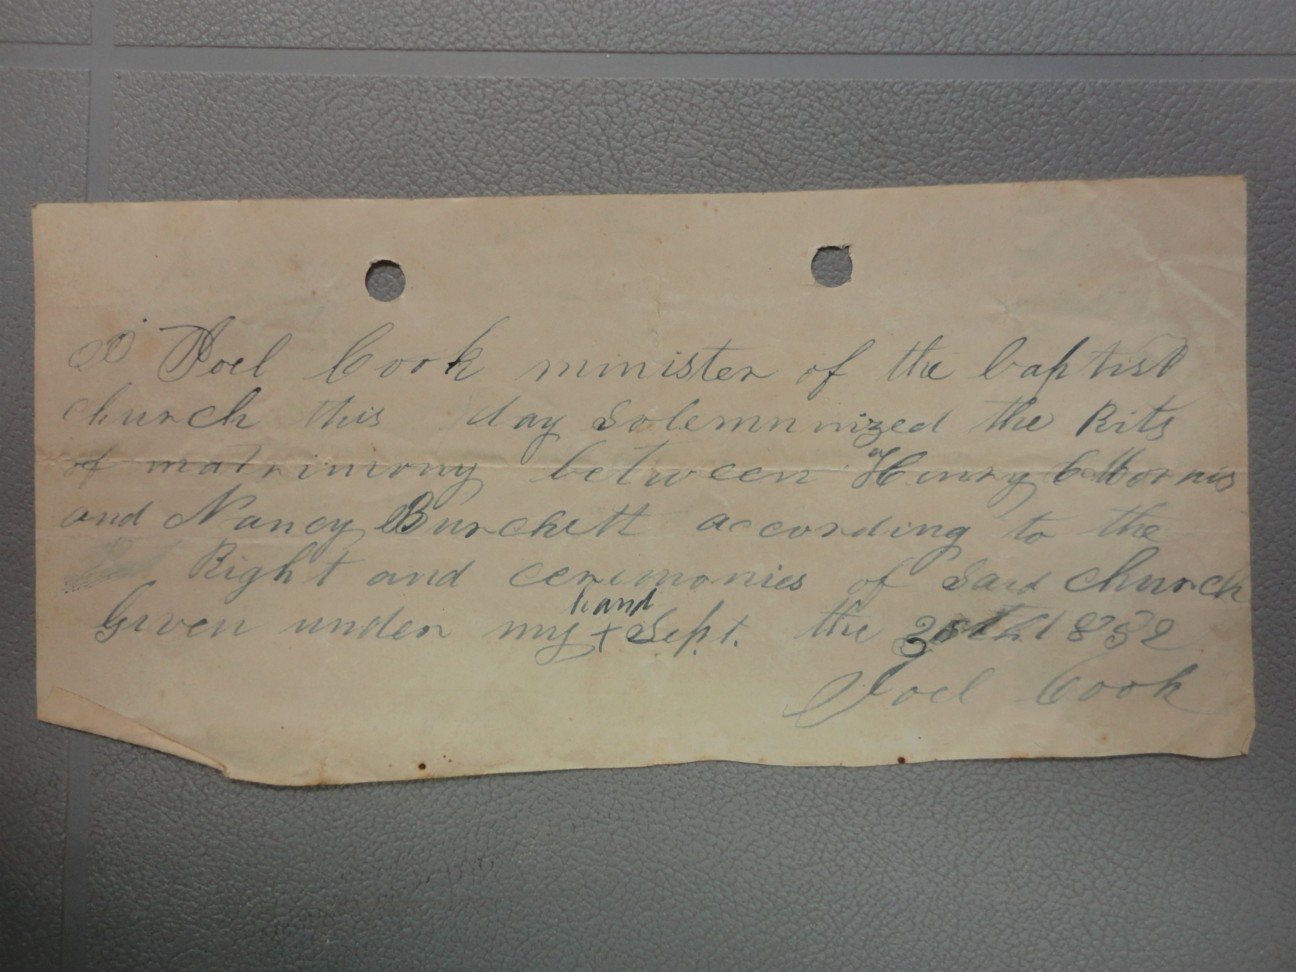 I Joel Cook minister of the baptist
church this day Solemnnized the Rits
of matrimony between Henry C Morris
and Nancy Burchett according to the
Right and cerimonies of Said church
Given under my hand Sept. the
Joel Cook